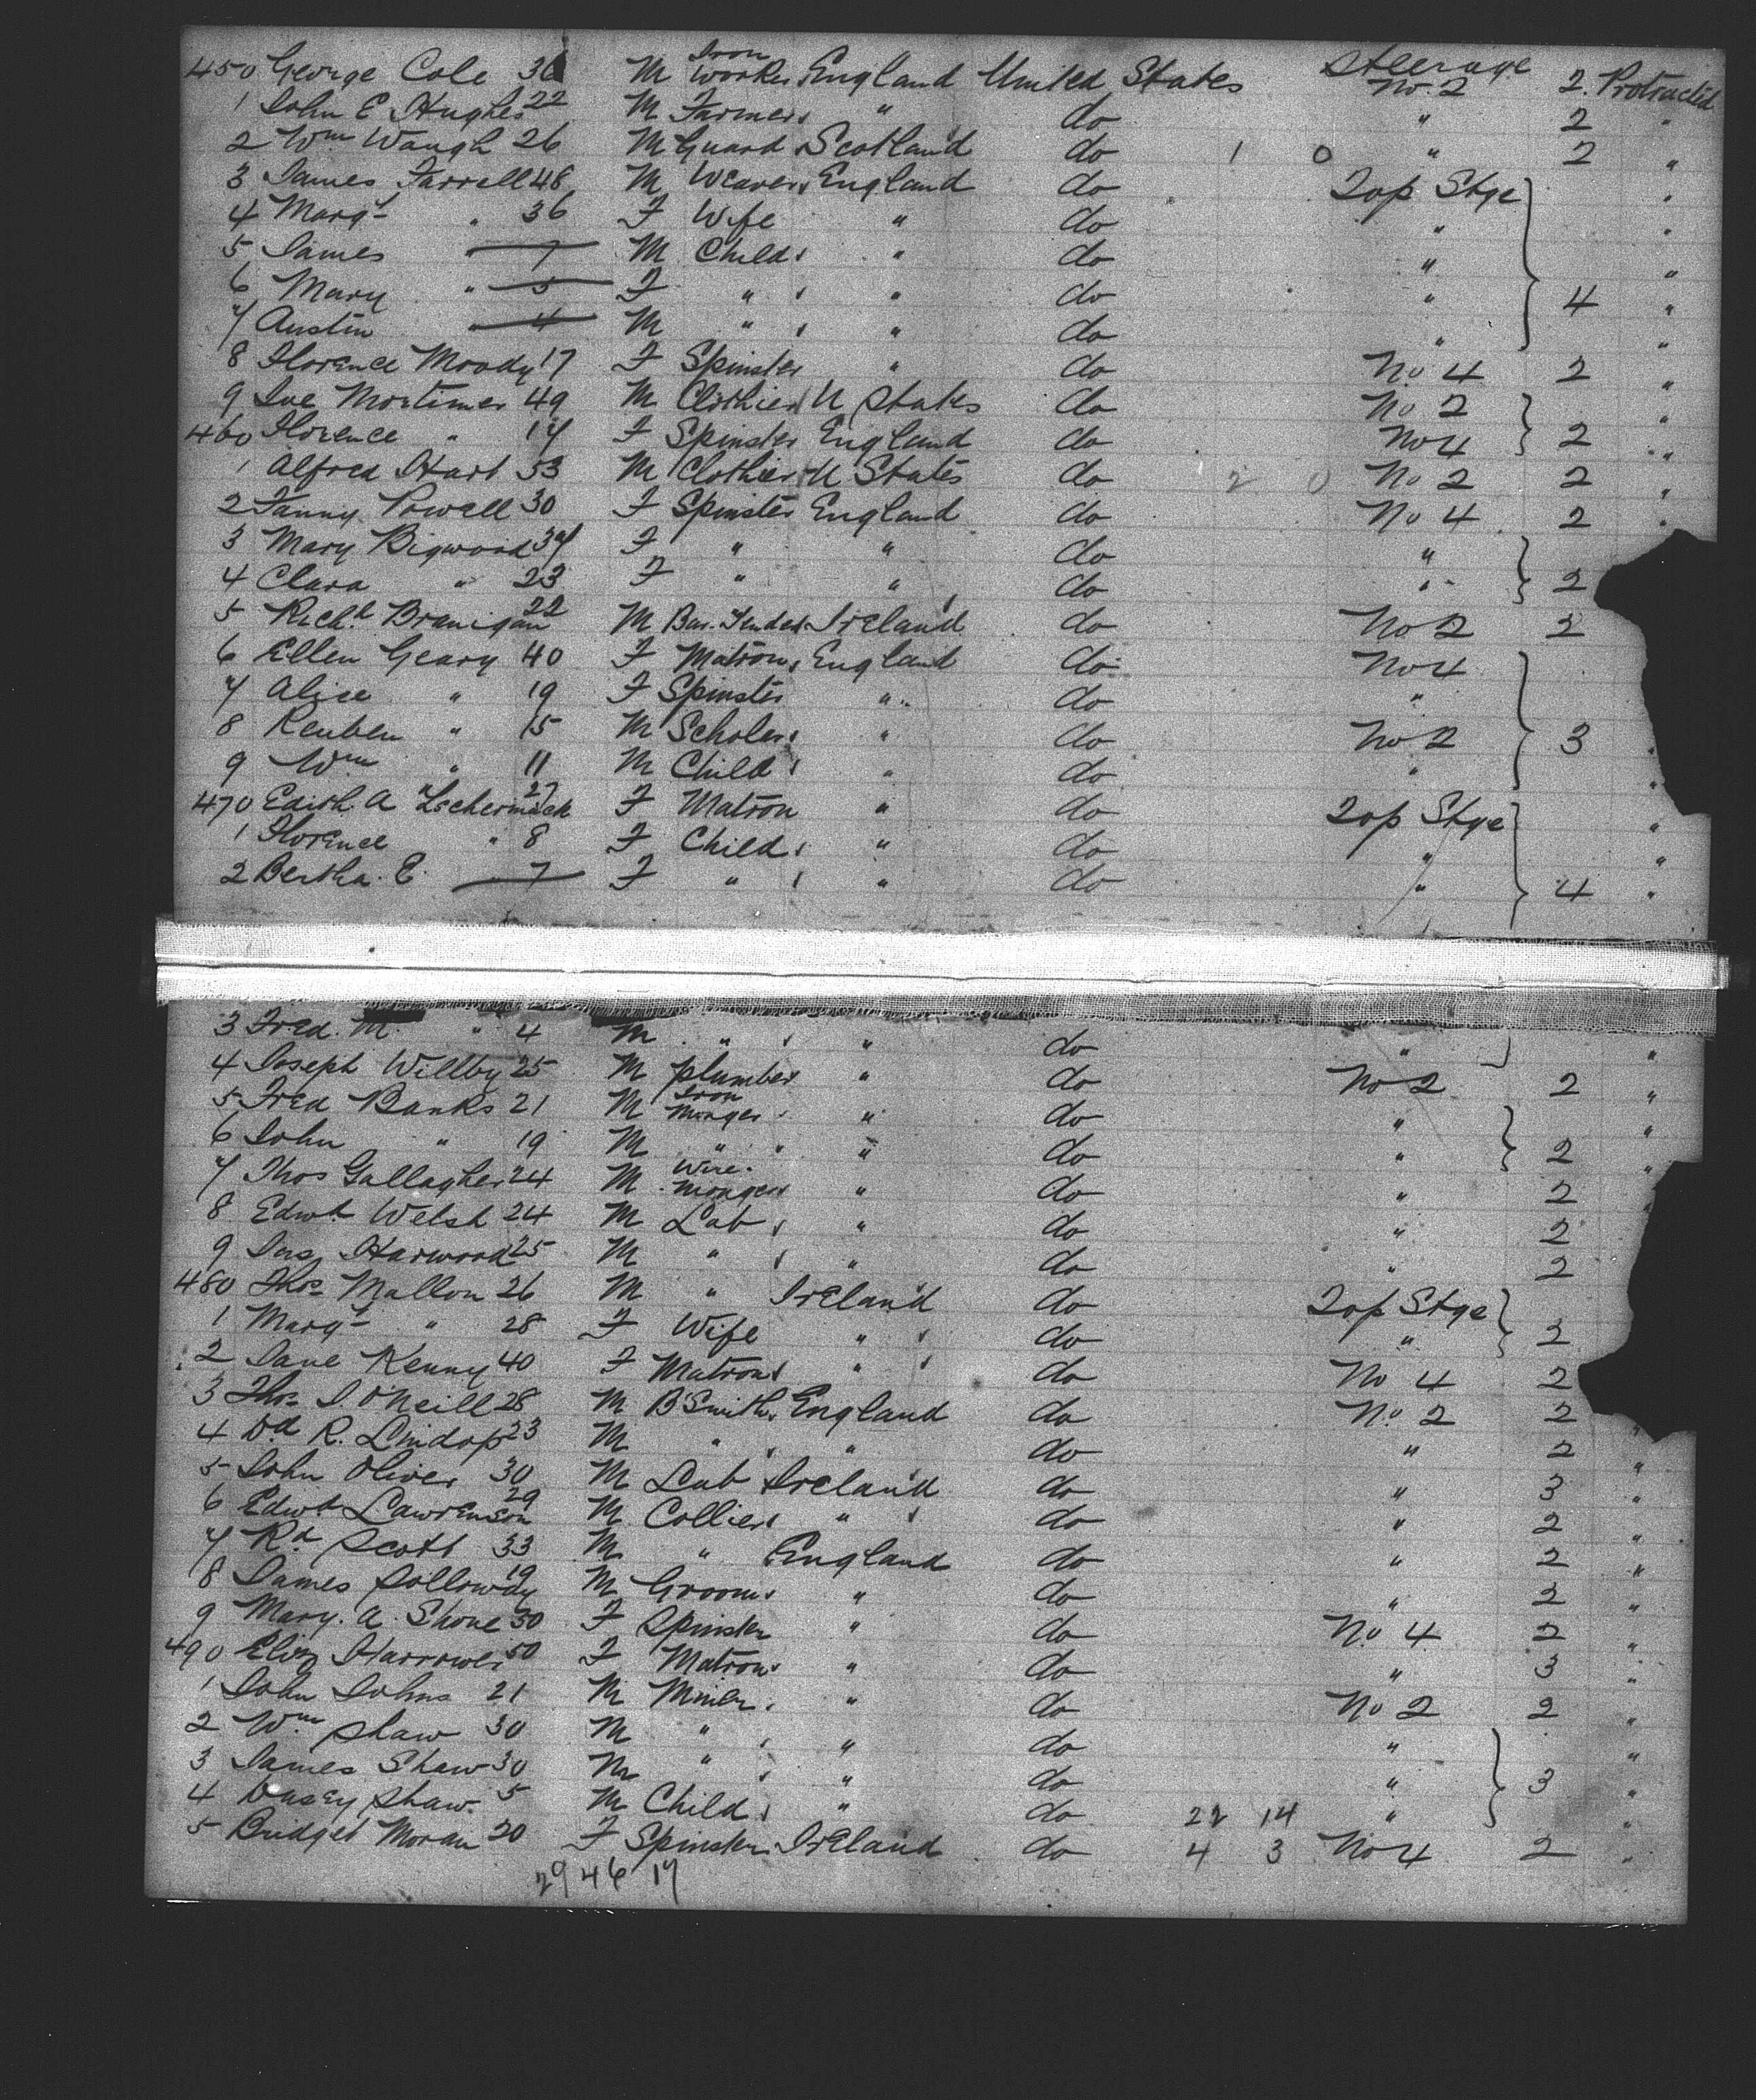 450 George Cole 36 M Iron Worker England United States Steerage No. 2 2. Protracted
1 John E Hughes 22 M Farmer " do " 2 "
2 Wm Waugh 26 M Guard Scotland do 1 0 " 2 "
3 James Farrell 48 M Weaver England do Top Stge "
4 Margt " 36 F Wife " do " "
5 James 7 M Child " do " "
6 Mary " 5 F " " do " 4 "
7 Austin " 4 M " " do " "
8 Florence Moody 17 F Spinster " do No 4 2 "
9 Mortimer 49 M Clothier U States do No 2 "
460 Florence " 17 F Spinster England do No 4 2 "
1 Alfred Hart 53 M Clothier U States do 2 0 No 2 2 "
2 Fanny Powell 30 F Spinster England do No 4 2 "
3 Mary Bigwood 37 F " " do "
4 Clara " 23 F " " do " 2
5 Richd Branigan 22 M Bar. Tender Ireland do No 2 2
6 Ellen Geary 40 F Matron England do No 4
7 Alice " 19 F Spinster " do "
8 Reuben " 15 M Scholar " do No 2 3 "
9 Wm " 11 M Child " do " "
470 Edith A 27 F Matron " do Top Stge "
1 Florence " 8 F Child " do " "
2 Bertha. E. 7 F " " do " 4 "
3 Fred. M " 4 M " " do " "
4 Joseph Willby 25 M plumber " do No 2 2 "
5 Fred Banks 21 M Iron Monger " do " "
6 John " 19 M " " " do " 2 "
7 Thos Gallagher 24 M Wire. monger " do " 2
8 Edwd Welsh 24 M Lab " do " 2
9 Jas Harwood 25 M " " do " 2
480 Thos Mallon 26 M " Ireland do Top Stge
1 Margt " 28 F Wife " do " 2
2 Jane Kenny 40 F Matron " do No 4 2
3 Thos J. O'Neill 28 M B'Smith England do No 2 2
4 Dd R. Lindop 23 M " " do " 2 "
5 John Oliver 30 M Lab Ireland do " 3 "
6 Edwd Lawrenson 29 M Collier " do " 2 "
7 Rd Scott 33 M " England do " 2 "
8 James Solloway 19 M Groom " do " 2 "
9 Mary. A. Shone 30 F Spinster " do No 4 2 "
490 Eliz Harrower 50 F Matron " do " 3 "
1 John Johns 21 M Miner " do No 2 2 "
2 Wm Shaw 30 M " " do " "
3 James Shaw 30 M " " do " 3 "
4 Shaw 5 M Child " do 22 14 " "
5 Bridget Moran 20 F Spinster Ireland do 4 3 No 4 2 "
29 46 17